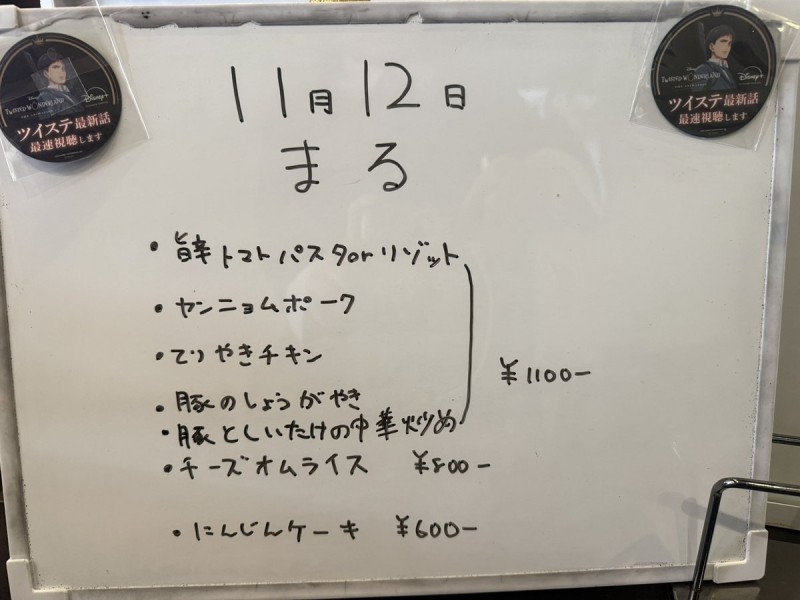 11月12日
まる
・旨辛トマトパスタorリゾット
・ヤンニョムポーク
・てりやきチキン
・豚のしょうがやき
・豚としいたけの中華炒め
¥1100-
・チーズオムライス ¥800-
・にんじんケーキ ¥600-
Disney
TWISTED WONDERLAND
Disney+
ツイステ最新話
最速視聴します
Disney
TWISTED WONDERLAND
Disney+
ツイステ最新話
最速視聴します